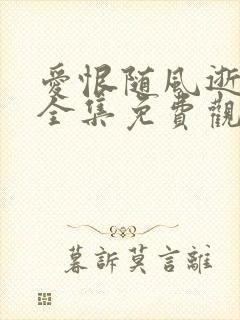 愛恨随風逝
全集免費觀
暮訴莫言離